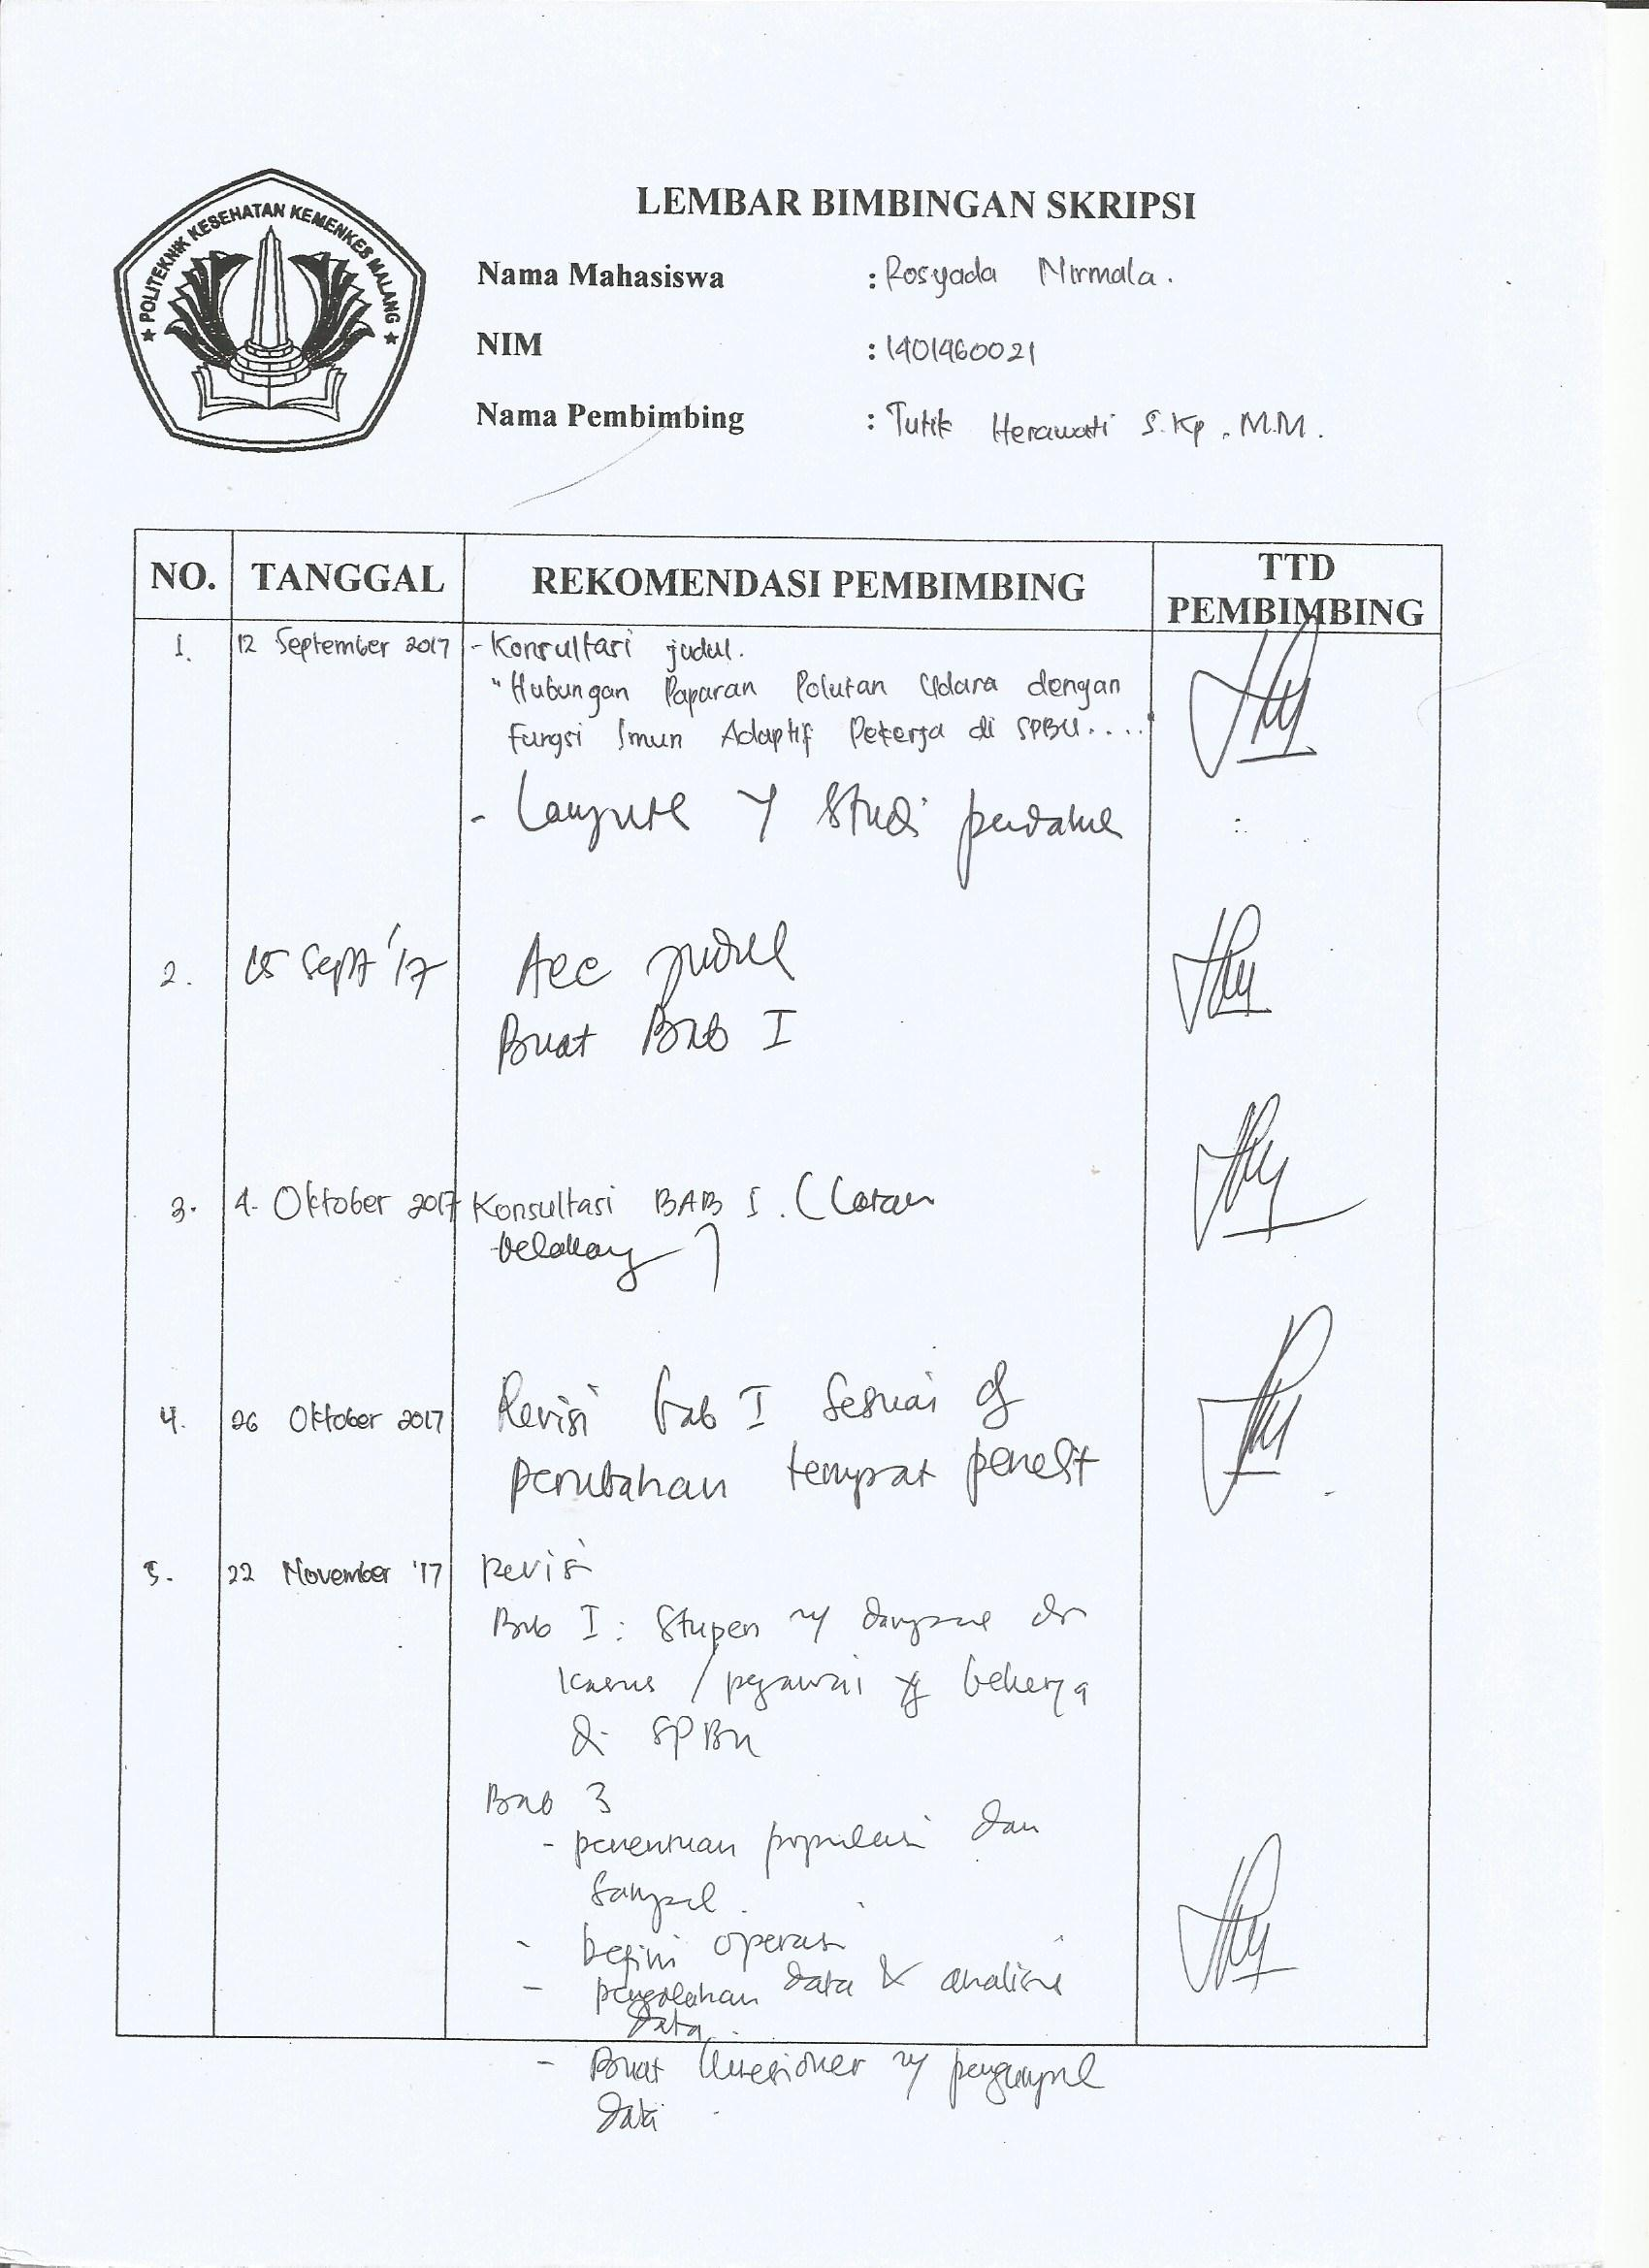 POLITEKNIK KESEHATAN KEMENKES MALANG
LEMBAR BIMBINGAN SKRIPSI
Nama Mahasiswa : Rosyada Nirmala.
NIM : 1401460021
Nama Pembimbing : Tutik Herawati S.Kp. M.M.
NO. TANGGAL REKOMENDASI PEMBIMBING TTD PEMBIMBING
1. 12 September 2017 - Konsultasi judul.
"Hubungan Paparan Polutan Udara dengan
Fungsi Imun Adaptif Pekerja di SPBU....
- Studi
2. 15 Sept '17 Acc judul
Buat Bab I
3. 4 Oktober 2017 Konsultasi BAB I. (Latar
belakang)
4. 26 Oktober 2017 Revisi bab I Sesuai dg
perubahan tempat penelit
5. 22 November '17 Revisi
Bab I : Stupen
kasus / pegawai yg bekerja
di SPBU
Bab 3
- penentuan populasi dan
sampel.
- Defini operas
- pengolahan data & analisis
data.
- Buat kuesioner
data